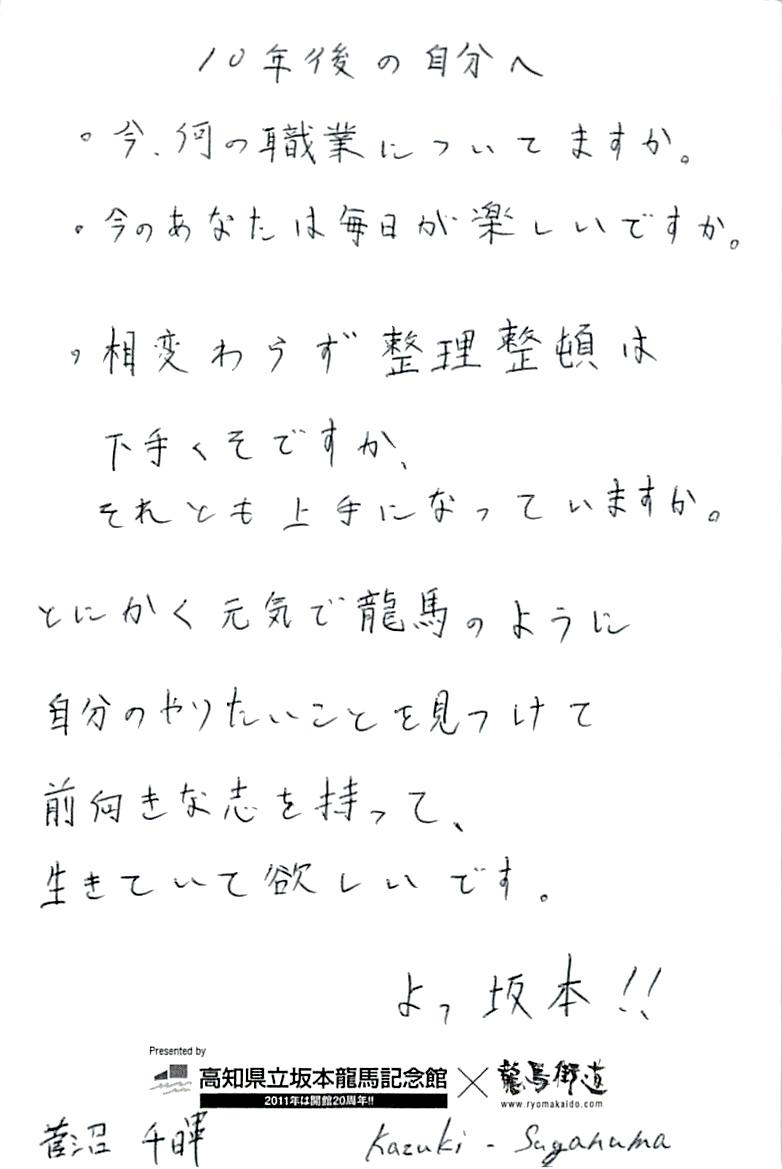 10年後の自分へ
・今、何の職業についてますか。
・今のあなたは毎日が楽しいですか。
・相変わらず整理整頓は
下手くそですか、
それとも上手になっていますか。
とにかく元気で龍馬のように
自分のやりたいことを見つけて
前向きな志を持って、
生きていて欲しいです。
よっ坂本!!
Presented by
高知県立坂本龍馬記念館 × 龍馬街道
2011年は開館20周年!!
www.ryomakaido.com
菅沼 千暉 Kazuki - Suganuma